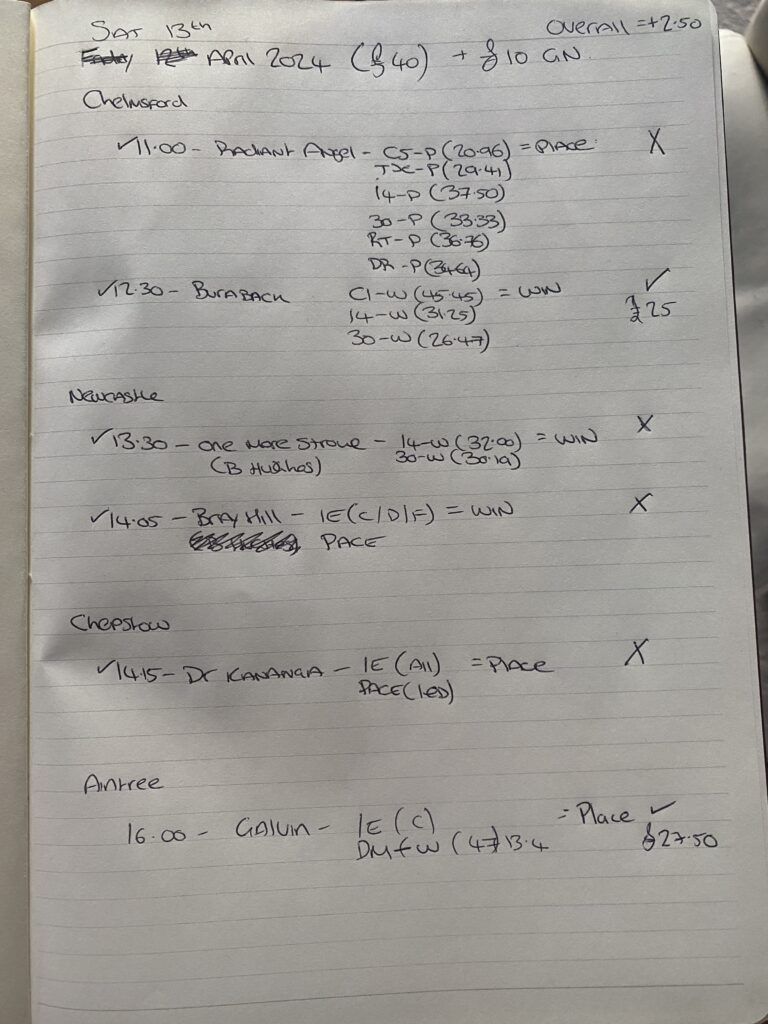 SAT 13th
Overall = +2.50
Friday 12th April 2024 (£40) + £10 GN.
Chelmsford
✓11.00 - Radiant Angel - C5-P (20.96) = Place X
JX-P (29.41)
14-P (37.50)
30-P (33.33)
RT-P (36.76)
DR-P (34.64)
✓12.30 - Buraback C1-W (45.45) = WIN ✓
14-W (31.25) £25
30-W (26.47)
Newcastle
✓13.30 - One More Stroke - 14-W (32.00) = WIN X
(B Hughes) 30-W (30.19)
✓14.05 - Bray Hill - IE (C/D/F) = WIN X
PACE
Chepstow
✓14.15 - Dr Kananga - IE (All) = Place X
PACE (led)
Aintree
16.00 - Galvin - IE (C) = Place ✓
DM f W (47) 13.4 £27.50